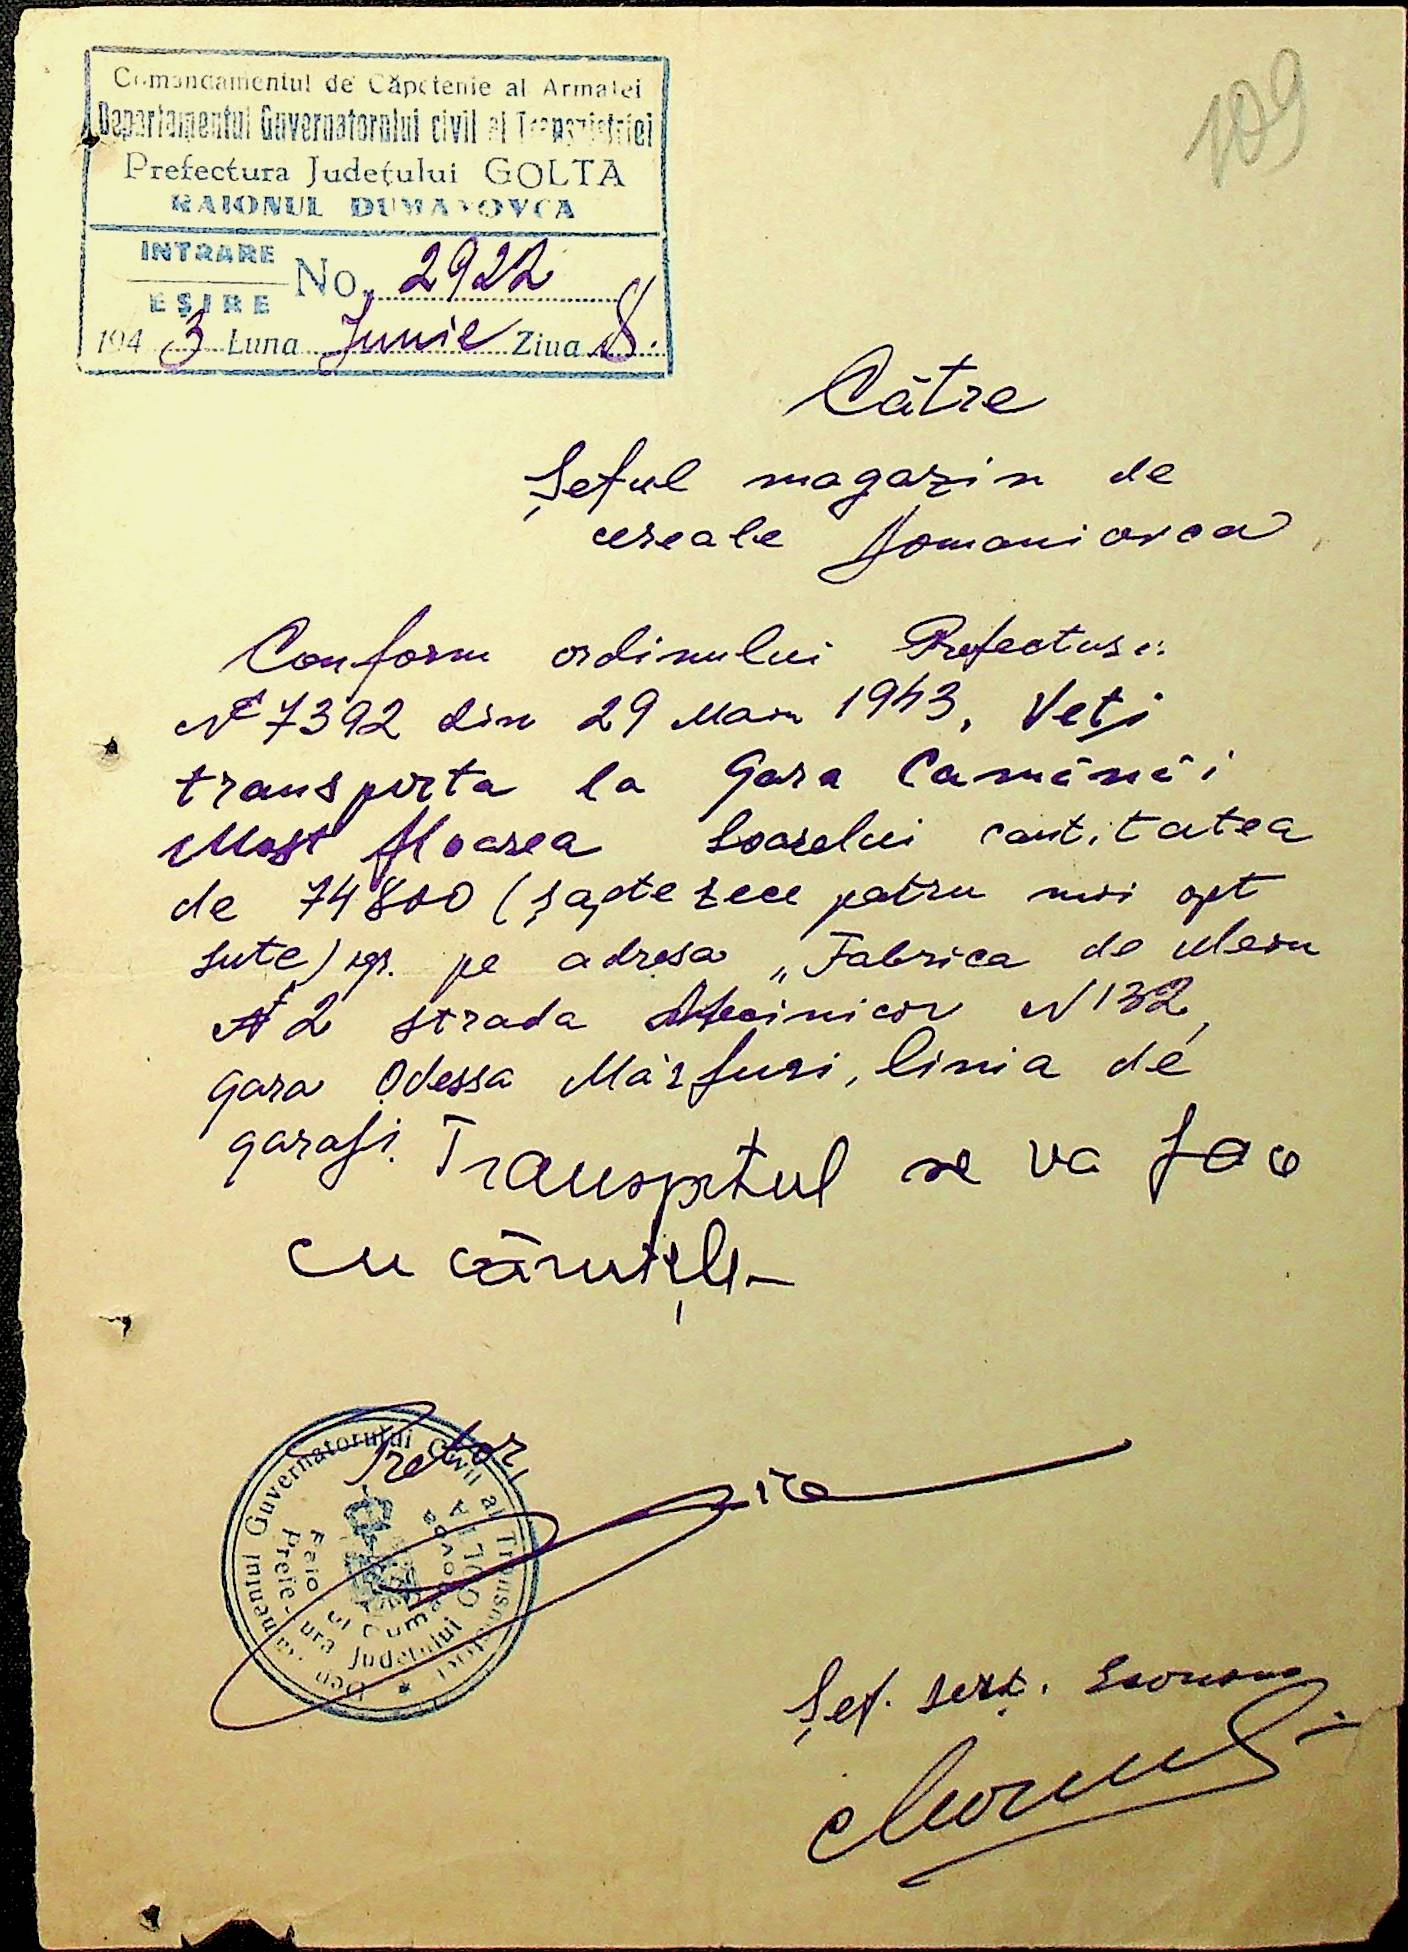 109
Comandamentul de Căpetenie al Armatei
Departamentul Guvernatorului civil al Transnistriei
Prefectura Județului GOLTA
RAIONUL DUMANOVCA
INTRARE
EȘIRE
No. 2922
194 3 Luna Junie Ziua 8.
Cātre
Șeful magazin de
cereale Domaniovca
Conform ordinului Prefecturei
No 7392 din 29 Main 1943, Veți
transporta la Gara Camānāi
Most floarea soarelui cantitatea
de 74800 (șapte zece patru mii opt
sute) kgr. pe adresa „Fabrica de Uleiu
No 2 strada N 132,
gara Odessa Mărfuri, linia de
garaj. Transportul se va face
cu cāruțele
Pretor,
Departamentul Guvernatorului Civil al Transnistriei
Prefectura Județului GOLTA
Șef. serv. Econom